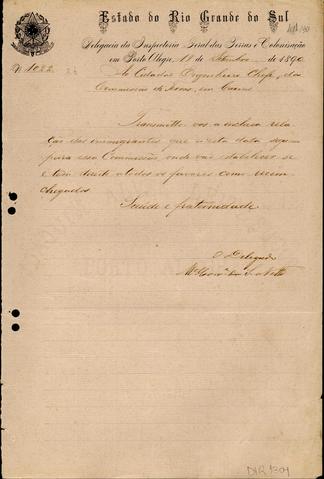 Estado do Rio Grande do Sul
Delegacia da Inspectoria Geral das Terras e Colonisação
em Porto Alegre, 18 de Setembro de 1890
Nº 1022
Ao Cidadão Engenheiro Chefe da
Commissão de Terras, em Caxias
Transmitto-vos a inclusa rela-
ção dos immigrantes que nesta data seguem
para essa Commissão onde vão estabelecer-se
e tem direito a todos os favores como recem
chegados
Saude e fraternidade
O Delegado